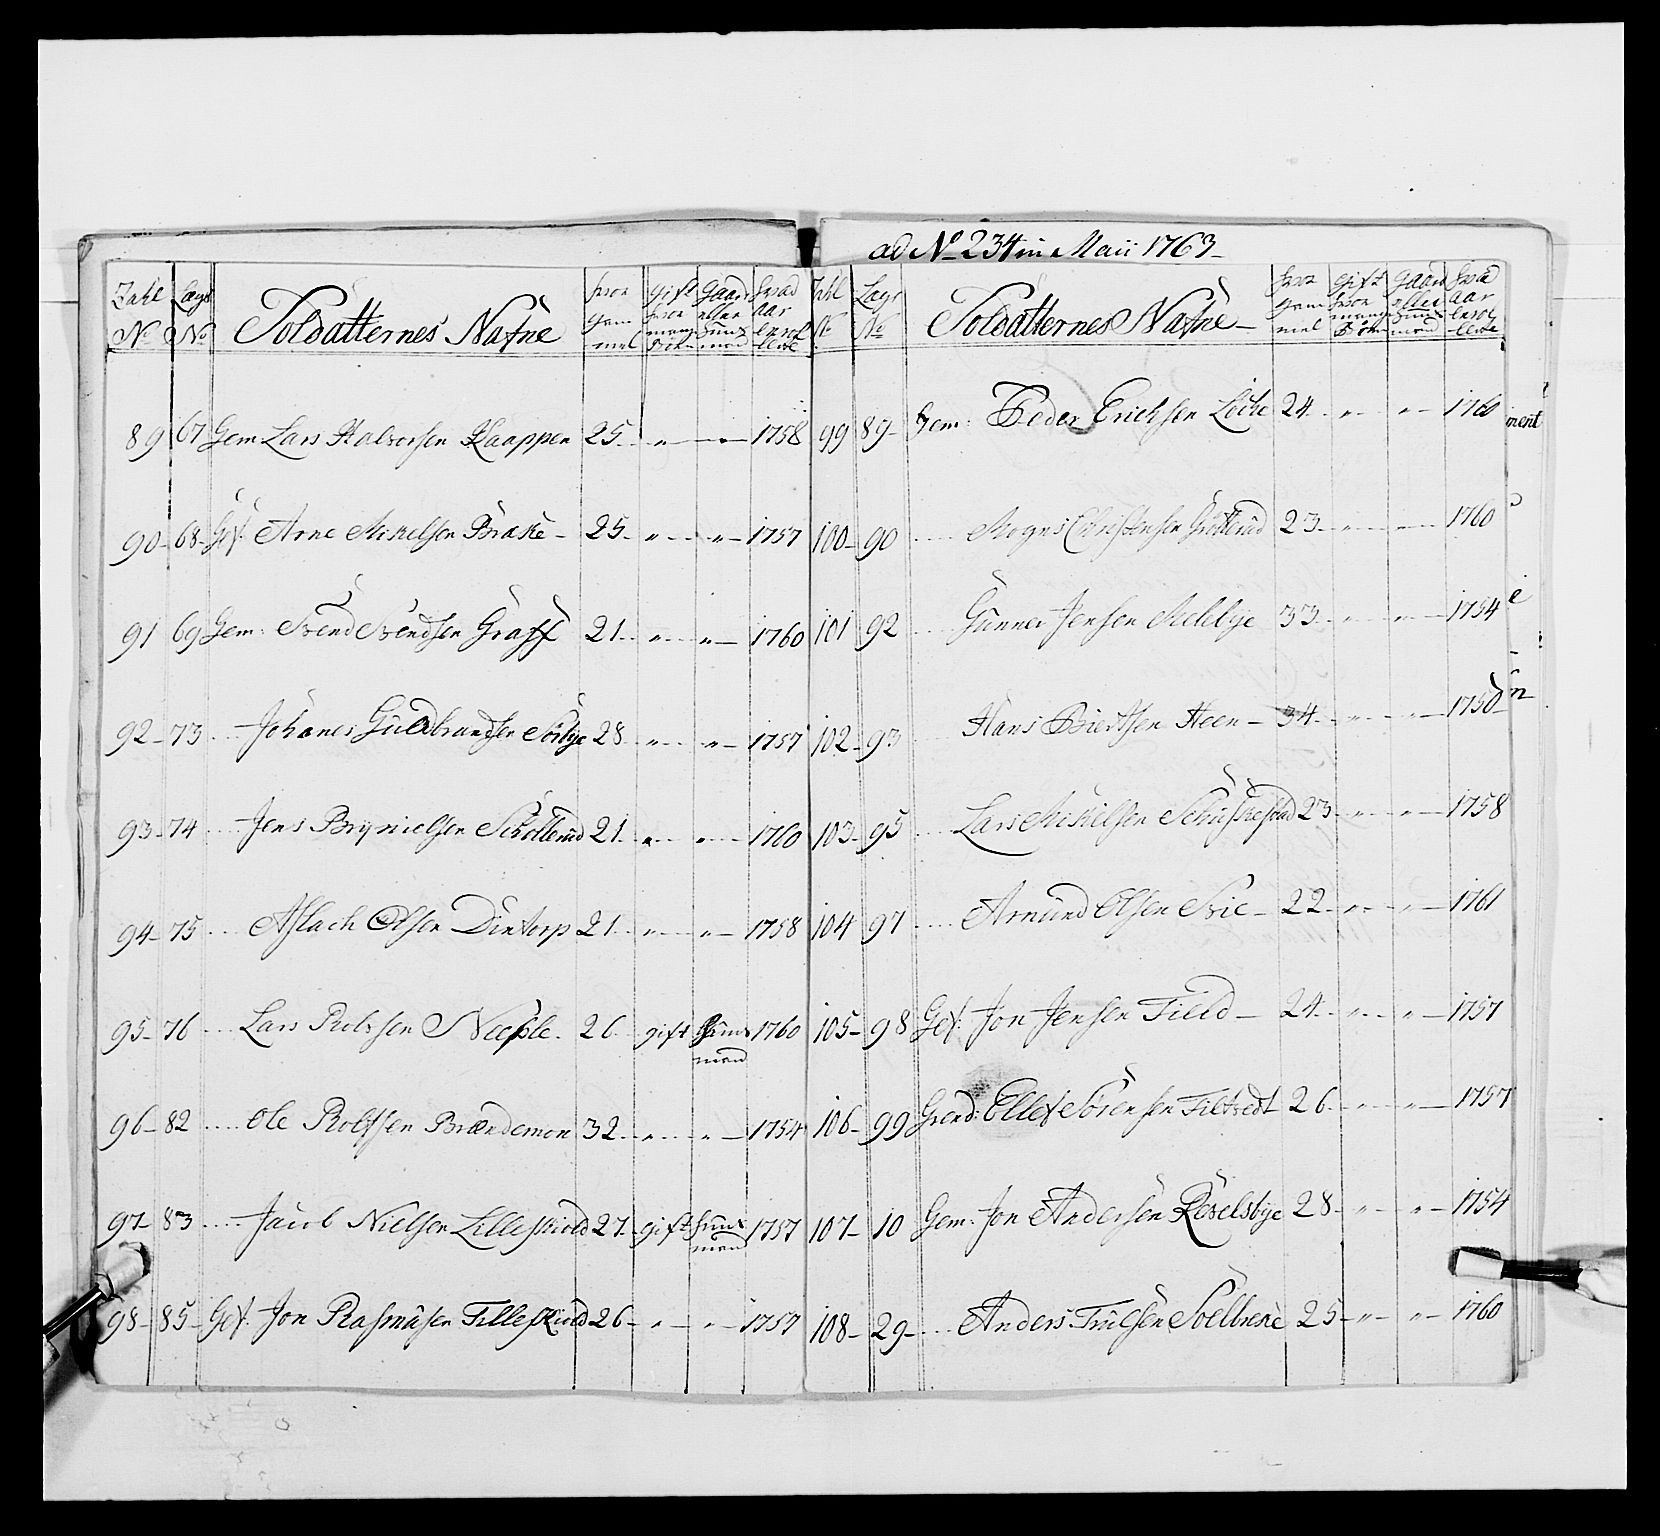 ad No 234 in Maii 1763
Zahl No Lægs No Soldatternes Nafne hvor gam mel gift hvor mang Börn Gaard eller huus mand hvad aar enrol lleret
89 67 Gem Lars Halvorsen Kaappen 25 „ „ 1758
90 68 Gef: Arne Mikelsen Brake 25 „ „ 1757
91 69 Gem: Svend Svendsen Graff 21 „ „ 1760
92 73 Johanes Guldbrandsen Sörbye 28 „ „ 1757
93 74 Jens Brynielsen Schollerud 21 „ „ 1760
94 75 Aslach Olsen Dintorp 21 „ „ 1758
95 76 Lars Rolfsen Neeple 26 gift huus mand 1760
96 82 Ole Rolfsen Brændemoen 32 „ „ 1754
97 83 Jacob Nielsen Lilleskiold 27 gift huus mand 1757
98 85 Gef: Jon Rasmusen Filleskiold 26 „ „ 1757
Zahl No Lægs No Soldatternes Nafne hvor gam mel gift hvor mang Börn Gaard eller huus mand hvad aar enrol lleret
99 89 Gem: Peder Erichsen Löche 24 „ „ 1760
100 90 Mogns Christensen 23 „ „ 1760
101 92 Gunner Jensen Melebye 33 „ „ 1754
102 93 Hans Biertsen Heen 34 „ „ 1750
103 95 Lars Mikelsen 23 „ „ 1758
104 97 Amund Olsen Svie 22 „ „ 1761
105 98 Gef: Jon Jensen Field 24 „ „ 1757
106 99 Grend: Ellef Sörensen Filtvedt 26 „ „ 1757
107 10 Gem: Jon Andersen Revelsbye 28 „ „ 1754
108 29 Anders Truelsen Soelbreke 25 „ „ 1760